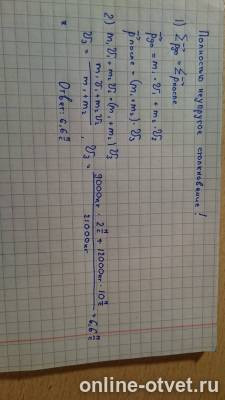 Полностью неупругое столкновение!
1) Σp⃗до = Σp⃗после
p⃗до = m₁ · v⃗₁ + m₂ · v⃗₂
p⃗после = (m₁ + m₂) · v⃗₃
2) m₁v⃗₁ + m₂v⃗₂ = (m₁ + m₂)v⃗₃
v₃ = (m₁v₁ + m₂v₂) / (m₁ + m₂), v₃ = (9000кг · 2 м/с + 12000кг · 10 м/с) / 21000кг = 6,6 м/с
Ответ: 6,6 м/с
online-otvet.ru